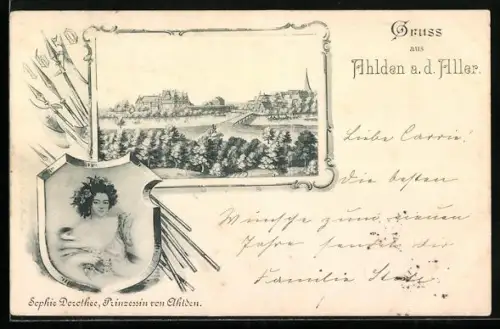 Gruss
aus
Ahlden a. d. Aller.
Liebe Carrie!
Die besten
Wünsche zum neuen
Jahre sendet dir
Familie
Sophie Dorothee, Prinzessin von Ahlden.